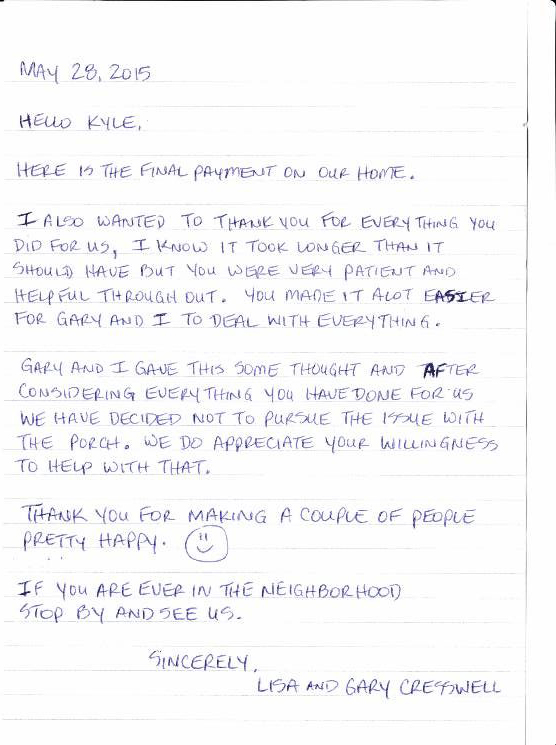 MAY 28, 2015
HELLO KYLE,
HERE IS THE FINAL PAYMENT ON OUR HOME.
I ALSO WANTED TO THANK YOU FOR EVERYTHING YOU
DID FOR US, I KNOW IT TOOK LONGER THAN IT
SHOULD HAVE BUT YOU WERE VERY PATIENT AND
HELPFUL THROUGH OUT. YOU MADE IT ALOT EASIER
FOR GARY AND I TO DEAL WITH EVERYTHING.
GARY AND I GAVE THIS SOME THOUGHT AND AFTER
CONSIDERING EVERYTHING YOU HAVE DONE FOR US
WE HAVE DECIDED NOT TO PURSUE THE ISSUE WITH
THE PORCH. WE DO APPRECIATE YOUR WILLINGNESS
TO HELP WITH THAT.
THANK YOU FOR MAKING A COUPLE OF PEOPLE
PRETTY HAPPY.
IF YOU ARE EVER IN THE NEIGHBORHOOD
STOP BY AND SEE US.
SINCERELY,
LISA AND GARY CRESSWELL